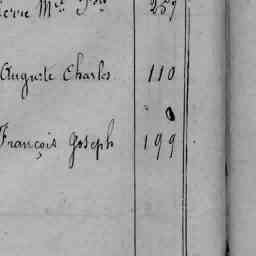 257
Auguste Charles 110
François Joseph 199